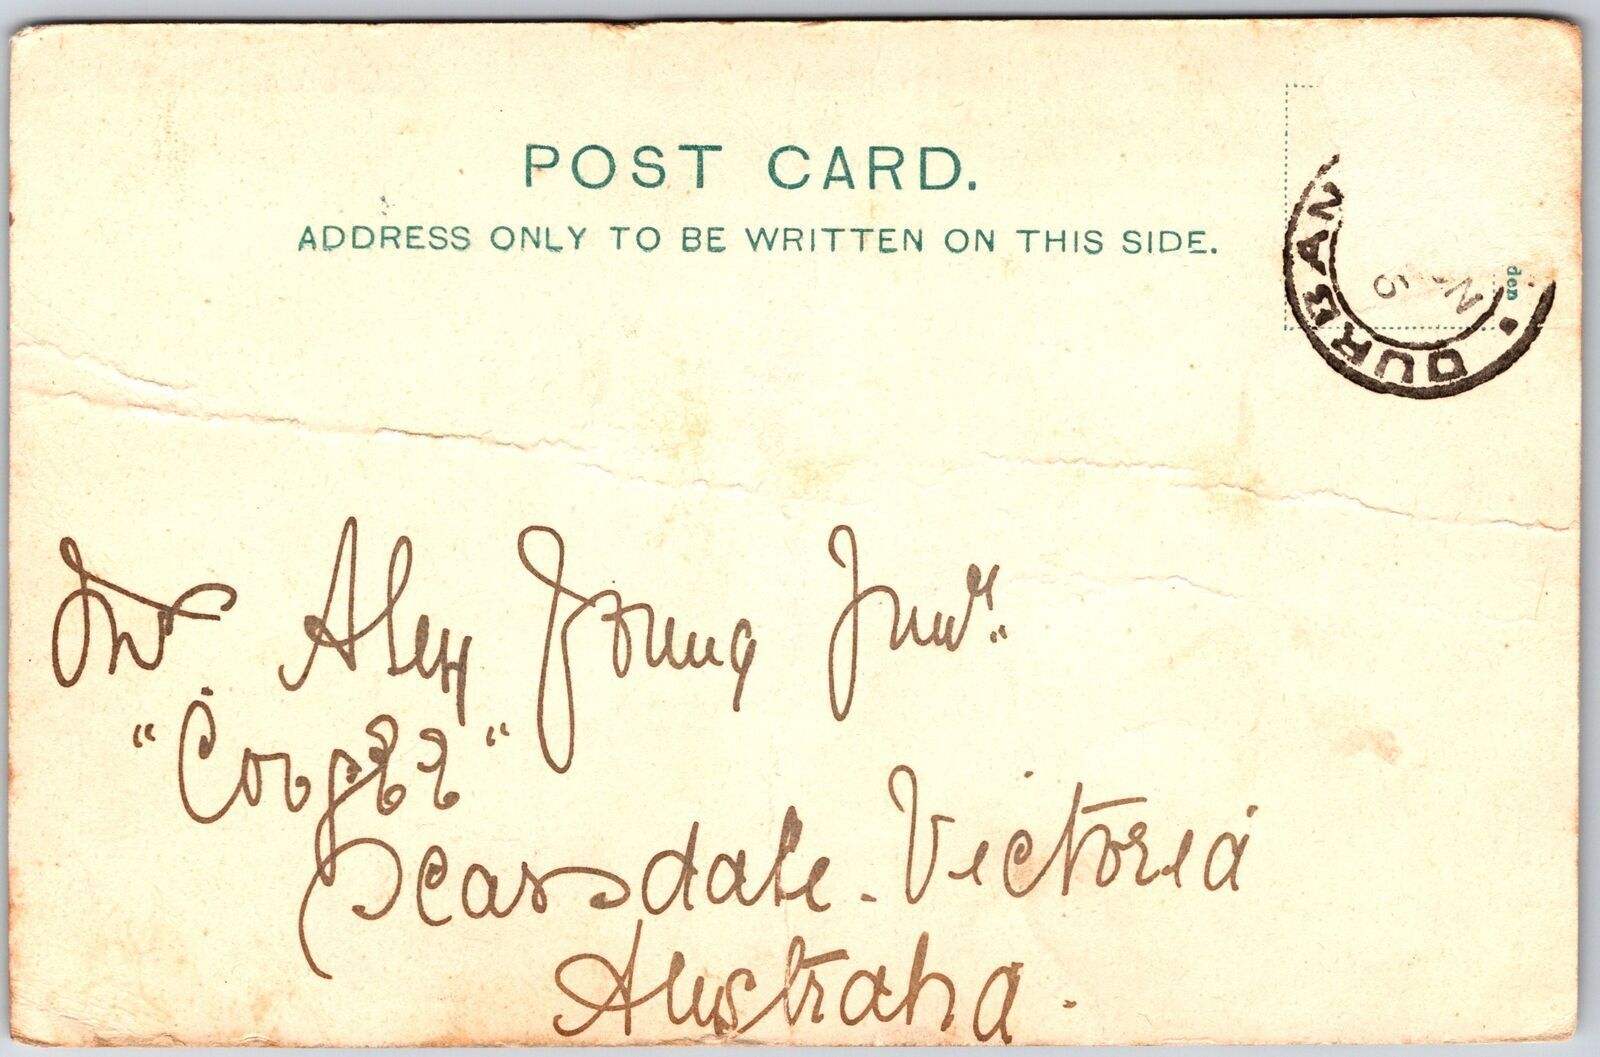 POST CARD.
ADDRESS ONLY TO BE WRITTEN ON THIS SIDE.
DURBAN
den
Mr Alex Young Junr.
Scarsdale. Victoria
Australia.